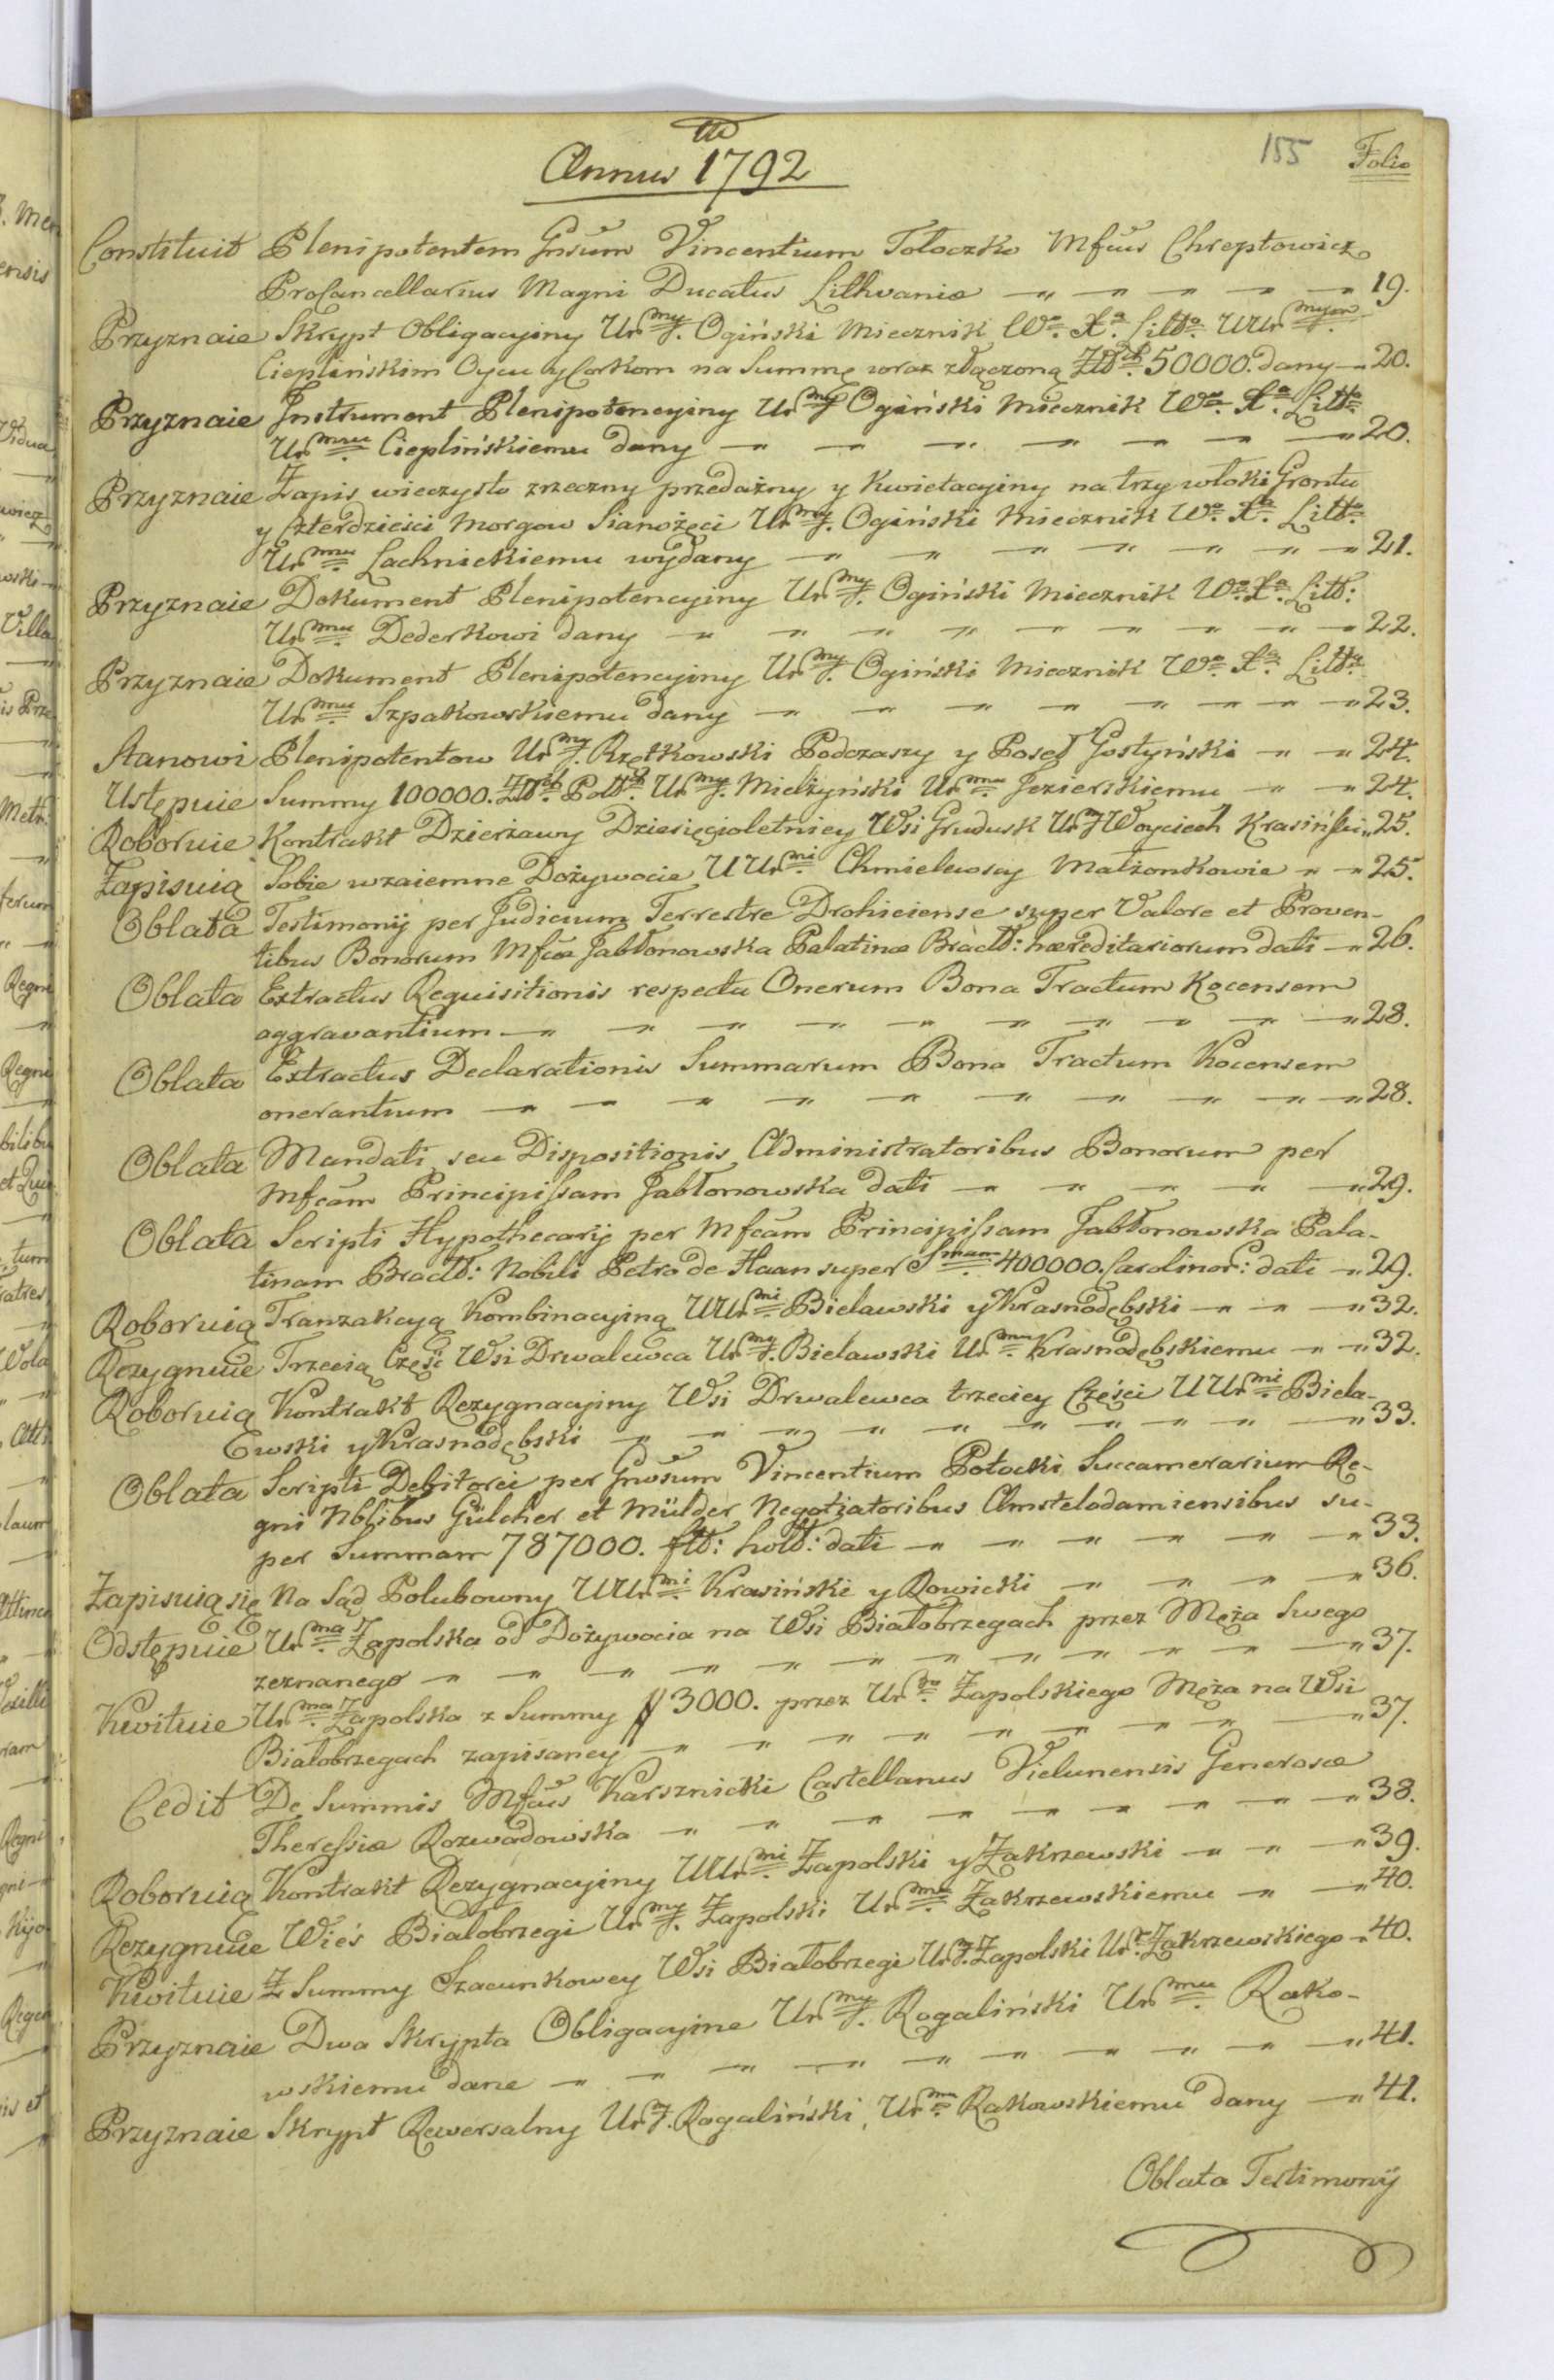 155 Folio
Annus 1792
Constituit Plenipotentem Gnsum Vincentium Toloczko Mfcus Chreptowicz
ProCancellarius Magni Ducatus Lithvaniæ 19.
Przyznaie Skrypt Obligacyiny Ur my J. Ogiński Miecznik Wo. Xa. Litto. UUr mym
Cieplińskim Oycu y Corkom na Summę wraz złączoną Złł. 50000. dany 20.
Przyznaie Instrument Plenipotencyiny Ur my J Ogiński Miecznik Wo. Xa. Litto
Ur mu Cieplińskiemu dany 20.
Przyznaie Zapis wieczysto zrzeczny przedażny y Kwietacyiny na trzy włoki Grontu
y Czterdzieści Morgow Sianożęci Ur my J. Ogiński Miecznik Wo. Xa. Litto
Ur mu Lachnickiemu wydany 21.
Przyznaie Dokument Plenipotencyiny Ur my J. Ogiński Miecznik Wo. Xa. Litt:
Ur mu Dederkowi dany 22.
Przyznaie Dokument Plenipotencyiny Ur my J. Ogiński Miecznik Wo. Xa. Litto
Ur mu Szpakowskiemu dany 23.
Stanowi Plenipotentow Ur my J. Rzętkowski Podczaszy y Poseł Gostyński 24.
Ustępuie Summy 100000. Złł. Poll. Ur my J. Mielżyński Ur mu Jezierskiemu 24.
Roboruie Kontrakt Dzierżawy Dziesięcioletniey Wsi Grudusk Ur J Woyciech Krasiński 25.
Zapisuią Sobie wzaiemne Dożywocie UUr mi Chmielewscy Małżonkowie 25.
Oblata Testimonij per Judicium Terrestre Drohiciense super Valore et Proven-
tibus Bonorum Mfcæ Jabłonowska Palatinæ Bracł: hæreditariorum dati 26.
Oblata Extractus Requisitionis respectu Onerum Bona Tractum Kocensem
aggravantium 28.
Oblata Extractus Declarationis Summarum Bona Tractum Kocensem
onerantium 28.
Oblata Mandati seu Dispositionis Administratoribus Bonorum per
Mfcam Principissam Jabłonowska dati 29.
Oblata Scripti Hypothecarij per Mfcam Principissam Jabłonowska Pala-
tinam Bracł: Nobili Petro de Haan super Smam 400000. Carolinor: dati 29.
Roboruią Tranzakcyą Kombinacyiną UUr mi Bielawski y Krasnodębski 32.
Rezygnuie Trzecią Część Wsi Drwalewca Ur my J. Bielawski Ur mu Krasnodębskiemu 32.
Roboruią Kontrakt Rezygnacyiny Wsi Drwalewca trzeciey Części UUr mi Biela-
wski y Krasnodębski 33.
Oblata Scripti Debitorei per Gnosum Vincentium Potocki Succamerarium Re-
gni Nblibus Gülcher et Mülder Negotiatoribus Amstelodamiensibus su-
per Summam 787000. fltt: holł: dati 33.
Zapisuią się Na Sąd Polubowny UUr mi Krasiński y Rowicki 36.
Odstępuie Ur ma Zapolska od Dożywocia na Wsi Białobrzegach przez Męża Swego
zeznanego 37.
Kwituie Ur ma Zapolska z Summy # 3000. przez Ur go Zapolskiego Męża na Wsi
Białobrzegach zapisaney 37.
Cedit De Summis Mfcus Karsznicki Castellanus Vielunensis Generosæ
Theressiæ Rozwadowska 38.
Roboruią Kontrakt Rezygnacyiny UUr mi Zapolski y Zakrzewski 39.
Rezygnuie Wieś Białobrzegi Ur my J. Zapolski Ur mu Zakrzewskiemu 40.
Kwituie Z Summy Szacunkowey Wsi Białobrzegi Ur J. Zapolski Ur. Zakrzewskiego 40.
Przyznaie Dwa Skrypta Obligacyine Ur my J. Rogaliński Ur mu Rako-
wskiemu dane 41.
Przyznaie Skrypt Rewersalny Ur J. Rogaliński, Ur mu Rakowskiemu dany 41.
Oblata Testimonij